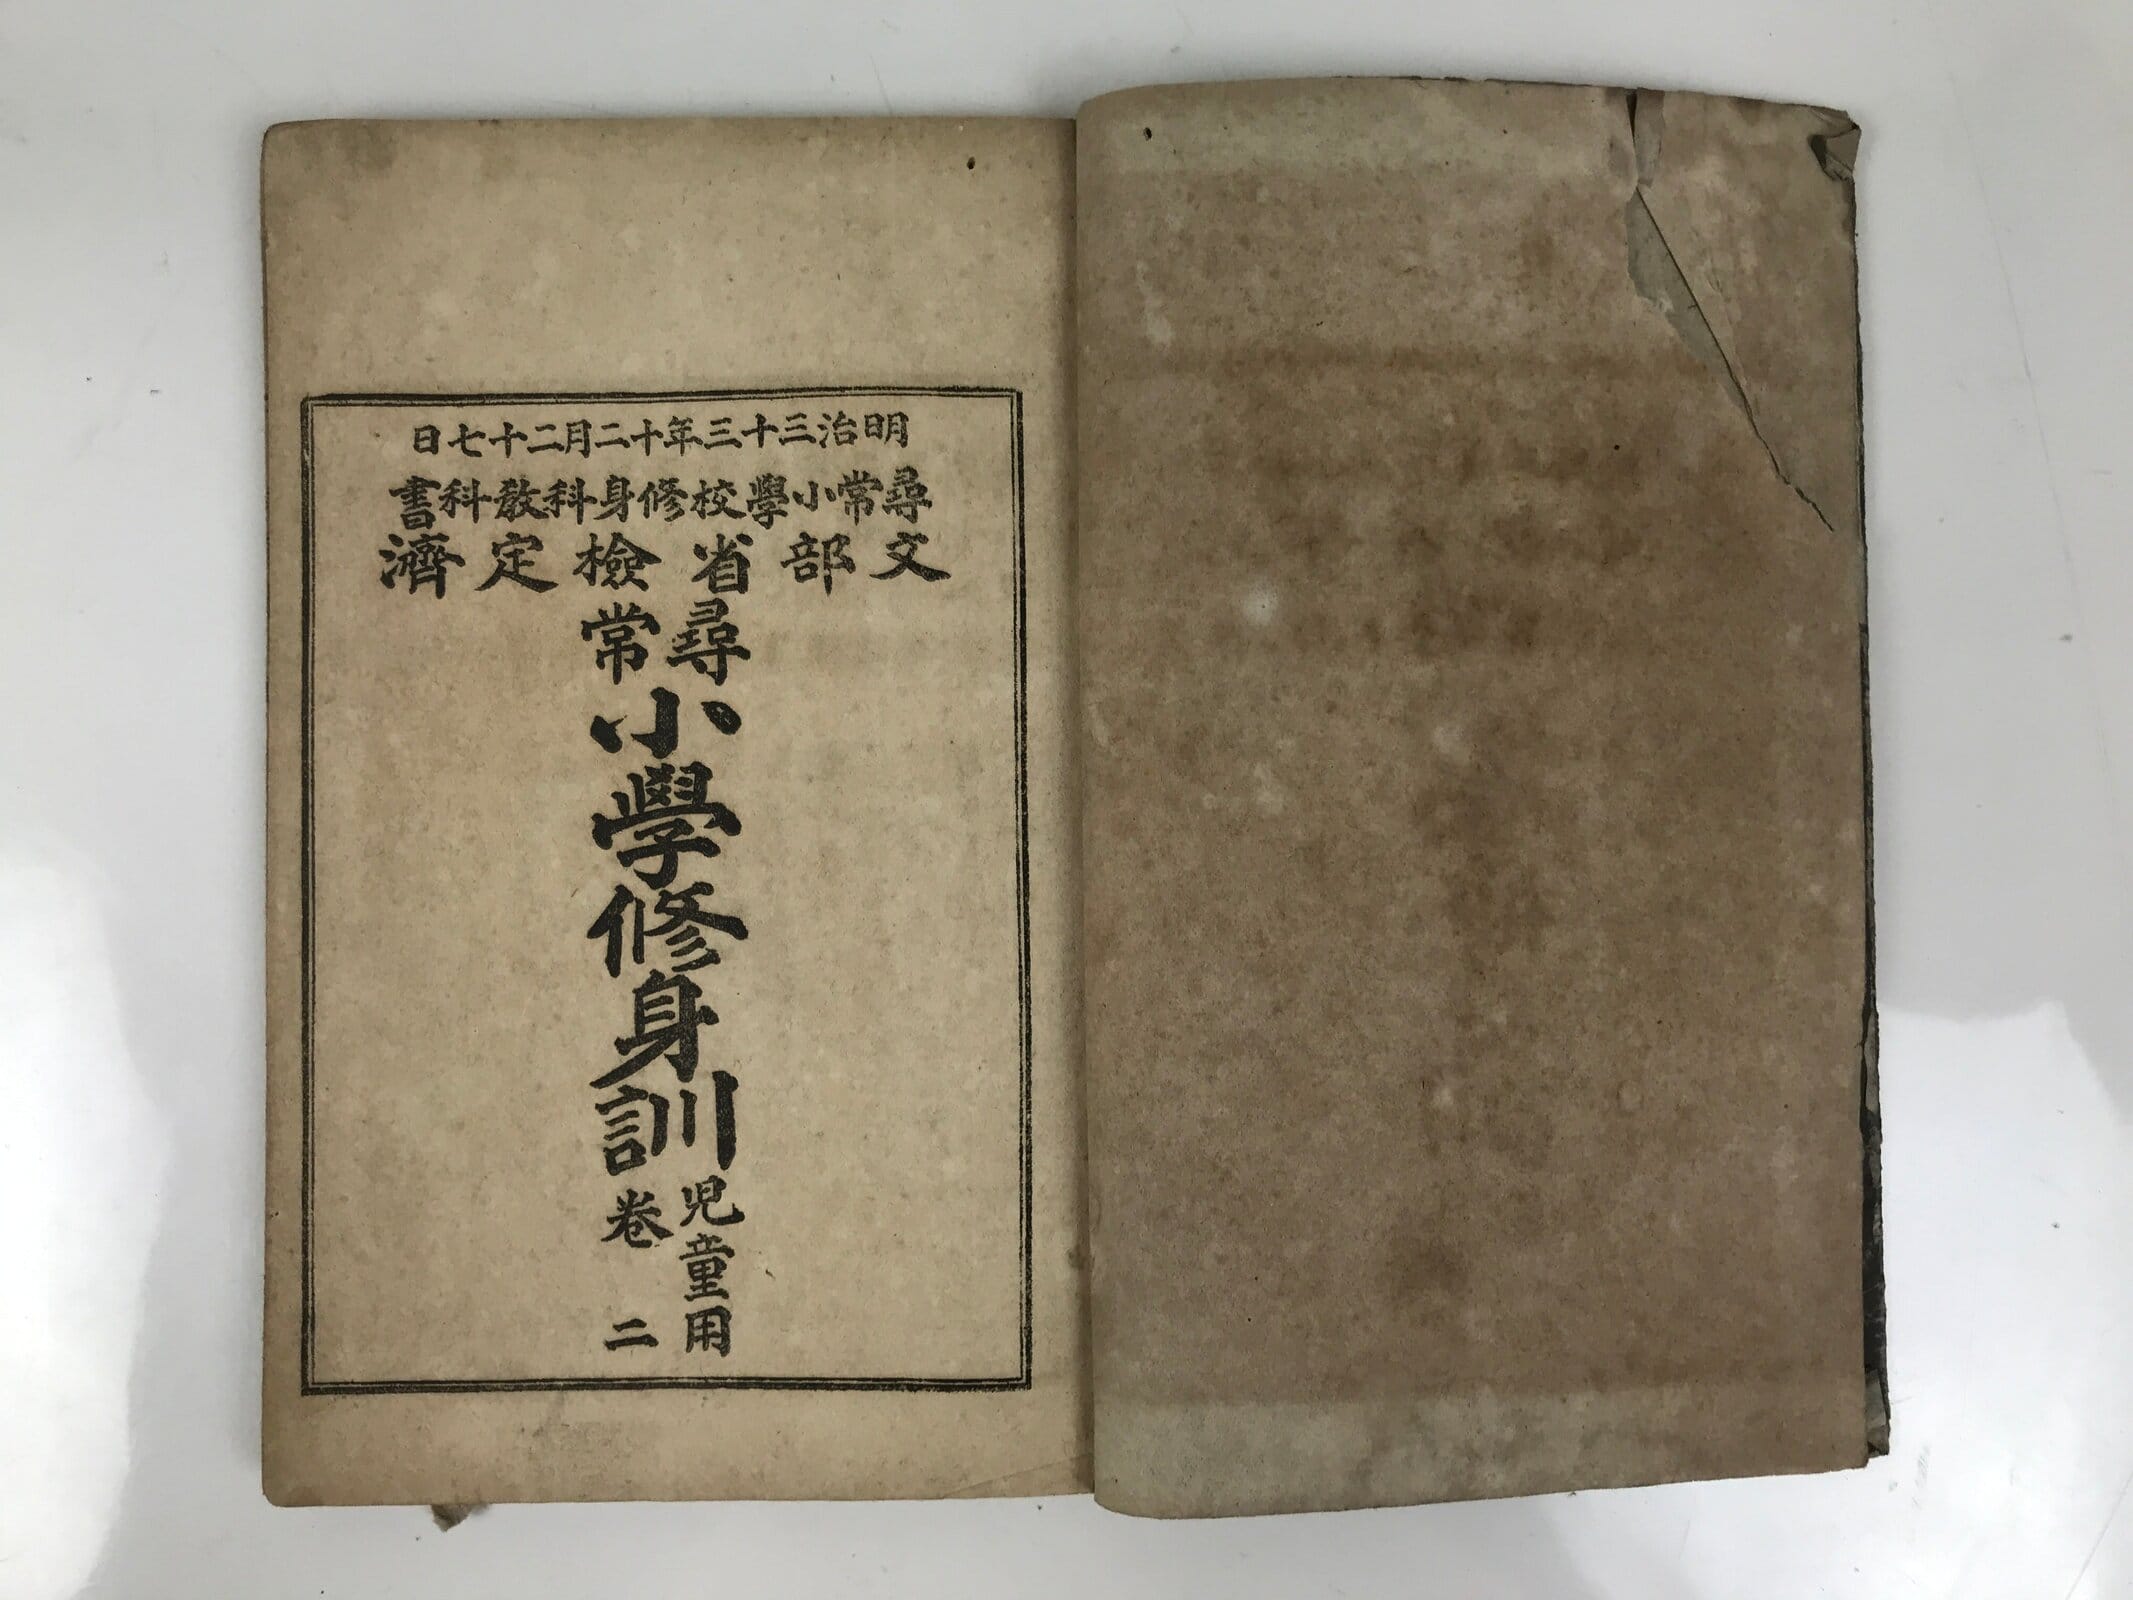 明治三十三年十二月二十七日
尋常小學校修身科教科書
文部省檢定濟
尋常
小學修身訓
児童用
卷二